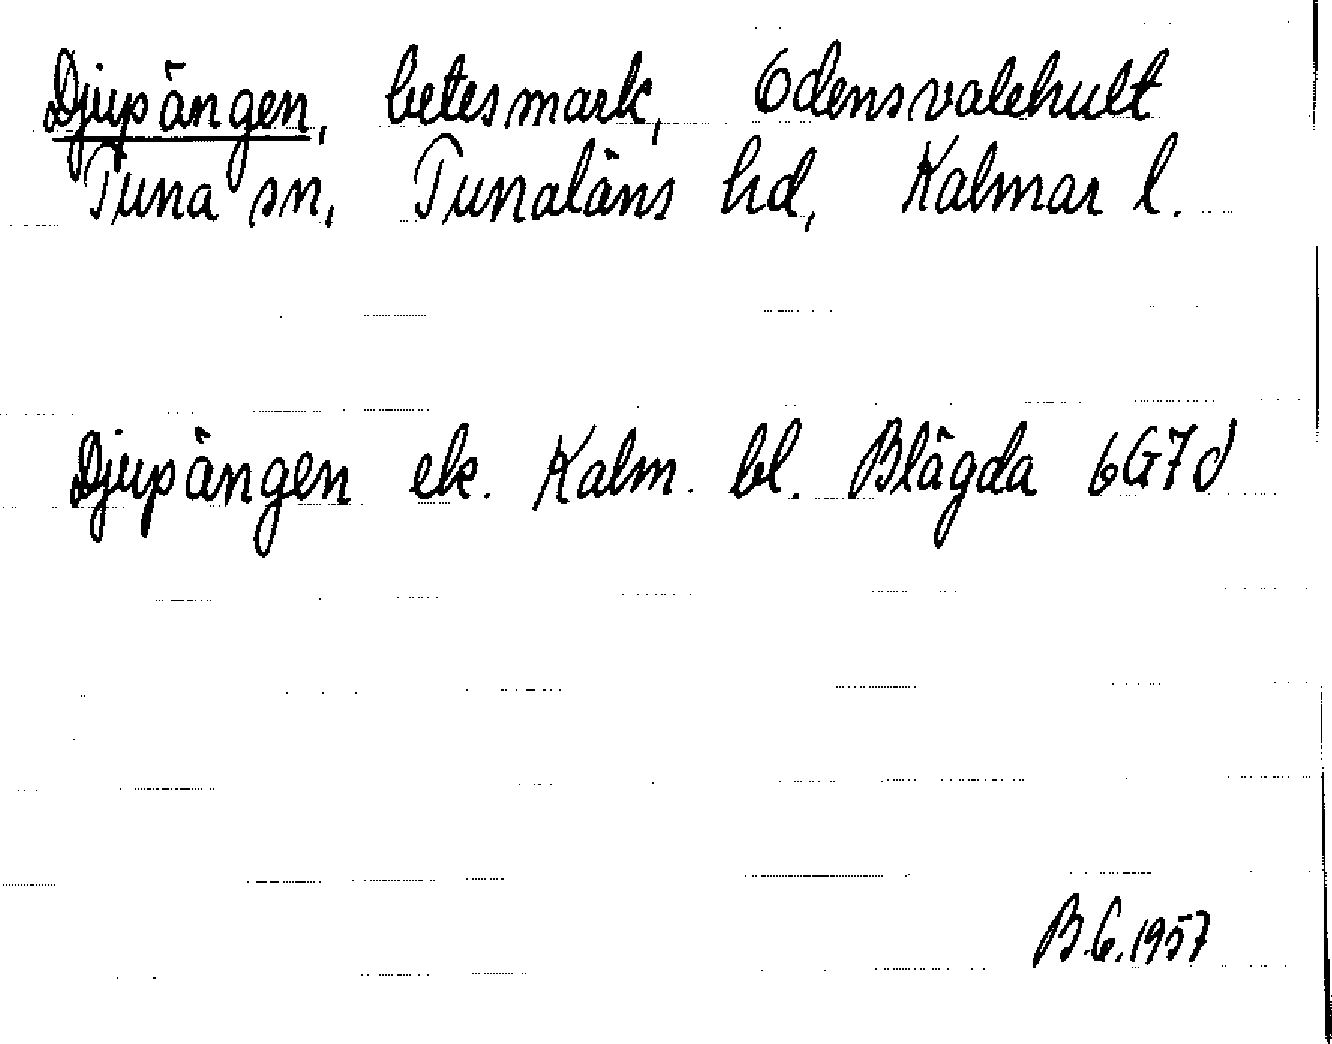 Djupängen, betesmark, Odensvalehult
Tuna sn, Tunaläns hd, Kalmar l.
Djupängen ek. Kalm. bl. Blägda 6G7d
B.G.1957